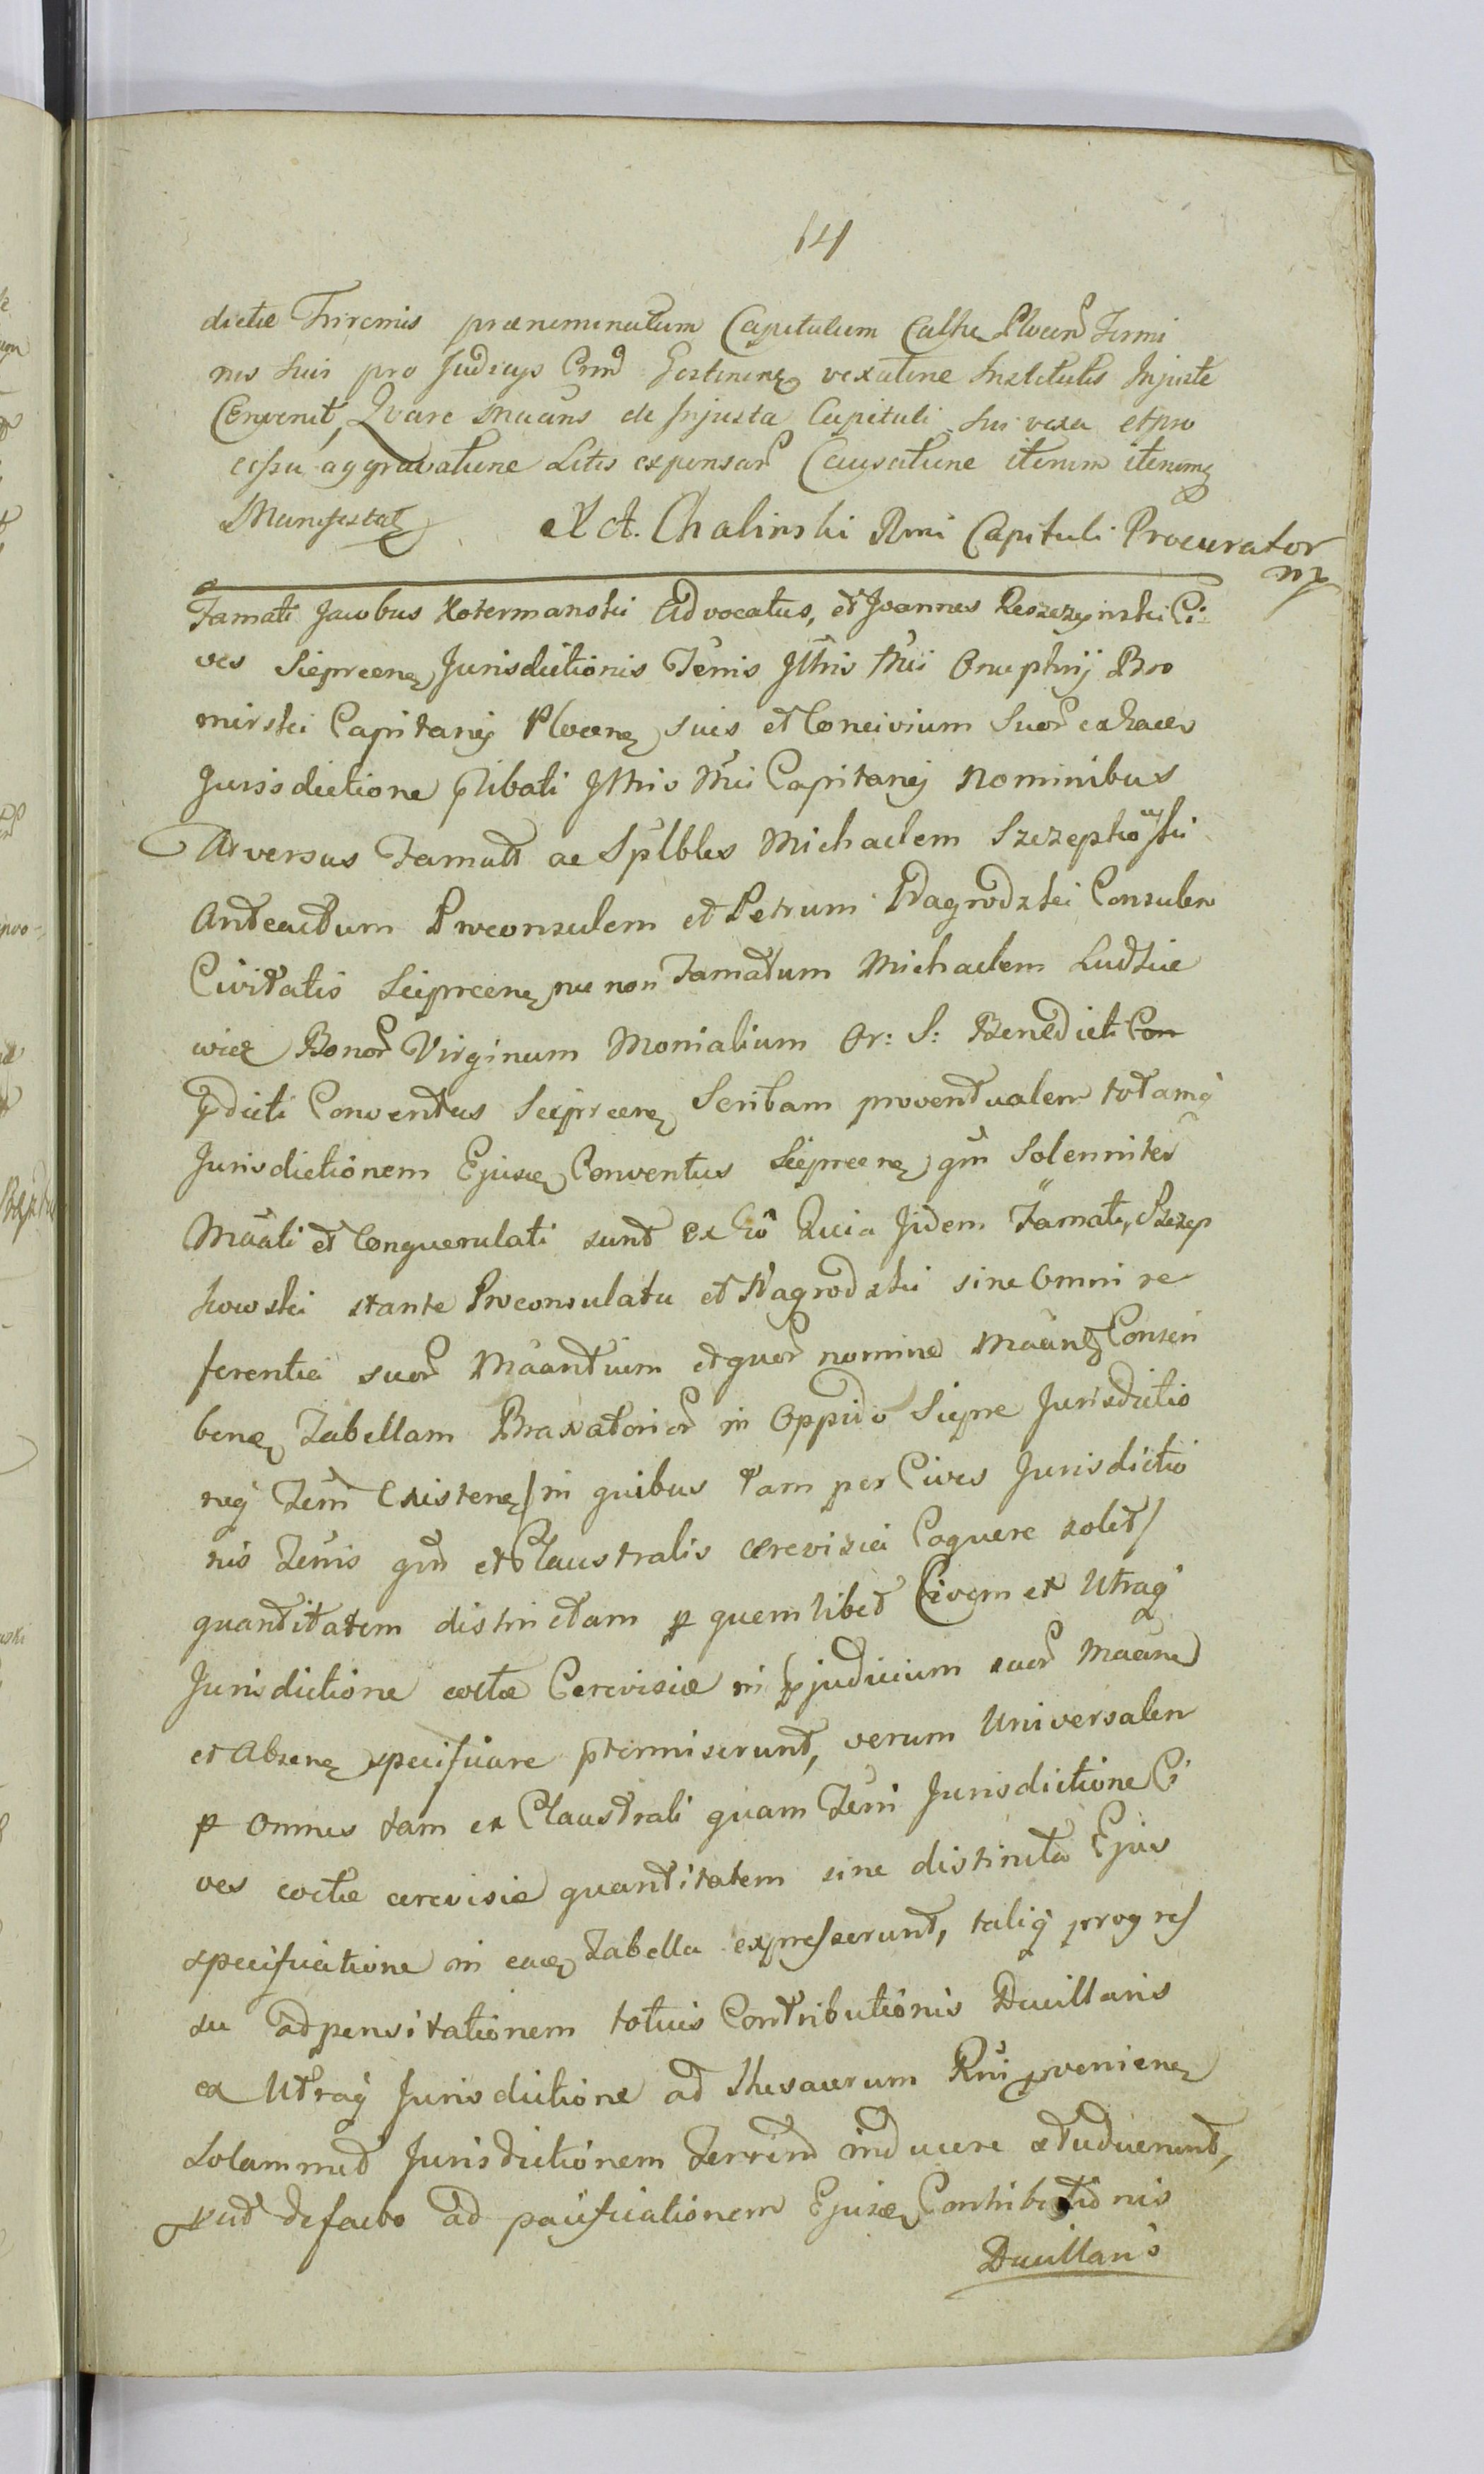 14
dictæ Triremis prænominatum Capitulum Cathe Plocen Termi
nis Suis pro Judicijs Gostinen vexatione Institutis Injuste
Convenit, Quare Mãans de Injusta Capituli Sui vexa et pro
cessu aggravatione Litis expensar Causatione iterum iterumq
Manifestat A. Chalinski Rmi Capituli Procurator
mp
Famati Jacobus Kotermanski Advocatus, et Joannes Reszczynski Ci:
ves Sieprcen Jurisdictionis Terris Illtris Mci Onuphrij Bro
mirski Capitanej Plocen suis et Concivium Suor ex hacce
Jurisdictione plibati Illtris Mci Capitanej Nominibus
Adversus Famatt ac Splbles Michaelem Szczepkowski
Anteactum Proconsulem et Petrum Nagrodzki Consulem
Civitatis Sieprcen nec non Famatum Michaelem Ludkie
wicz Bonor Virginum Monialium Or: S: Benedicti Con
pdicti Conventus Sieprcen Scribam proventualem totamq
Jurisdictionem Ejusd Conventus Sieprcen qm Solenniter
Mãati et Conquerulati sunt ex Eo Quia Jidem Famati, Szczep
kowski stante Proconsulatu et Nagrodzki sine Omni re
ferentia suor Mãantium et quor nomine Mãant Conscri
ben Tabellam Braxatorior in Oppido Siepre Jurisdictio
neq Terri Existen / in quibus tam per Cives Jurisdictio
nis Terris qm et Claustralis cerevisia Coquere solet /
quantitatem distinctam p quemlibet Civem ex Utraq
Jurisdictione coctæ Cerevisiæ in pjudicium suor Mãan
et Absen specificare ptermiserunt, verum Universalem
p Omnes tam ex Claustrali quam Terri Jurisdictione Ci
ves coctæ cerevisiæ quantitatem sine distincta Ejus
specificatione in eade Tabella expresserunt, taliq progres
su ad pensitationem totius Contributionis Ducillaris
ex Utraq Jurisdictione ad Thesaurum Rni provenien
Solammet Jurisdictionem Terrem inducere studuerunt,
sicut de facto ad pacificationem Ejusd Contributionis
Ducillaris